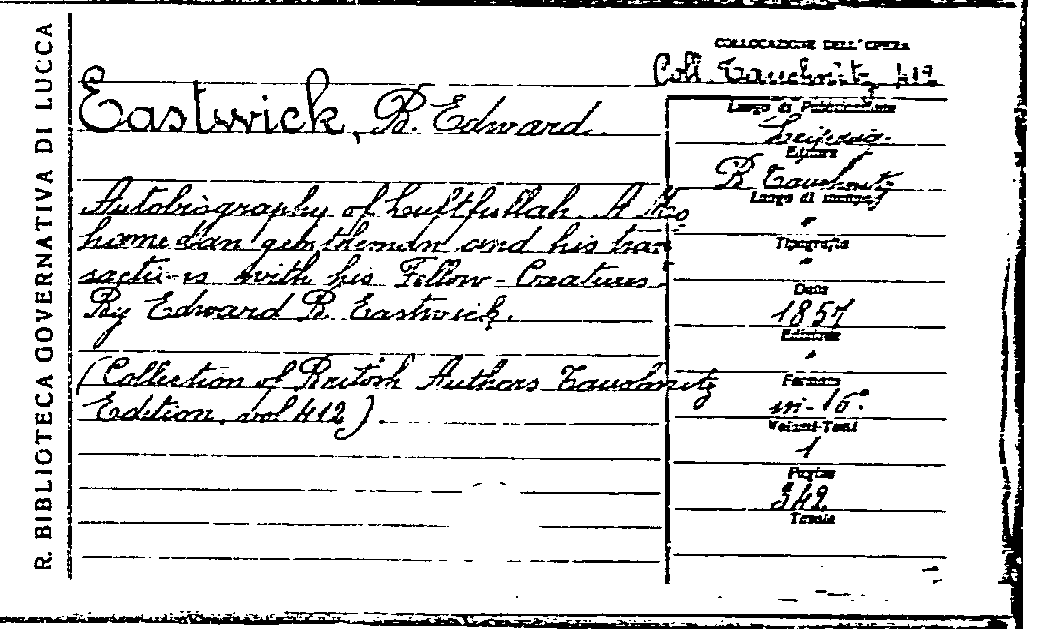 R. BIBLIOTECA GOVERNATIVA DI LUCCA
COLLOCAZIONE DELL'OPERA
Coll. Tauchnitz 412
Eastwick, B. Edward.
Autobiography of Luftfullah. A Mo
homedan gentleman and his tran
sactions with his Fellow-Creatures.
By Edward B. Eastwick.
(Collection of British Authors Tauchnitz
Edition. vol 412).
Luogo di Pubblicazione
Leipzig.
Editore
B. Tauchnitz
Luogo di stampa
"
Tipografia
"
Data
1857
Edizione
"
Formato
in-16°.
Volumi-Tomi
1
Pagine
342
Tavole